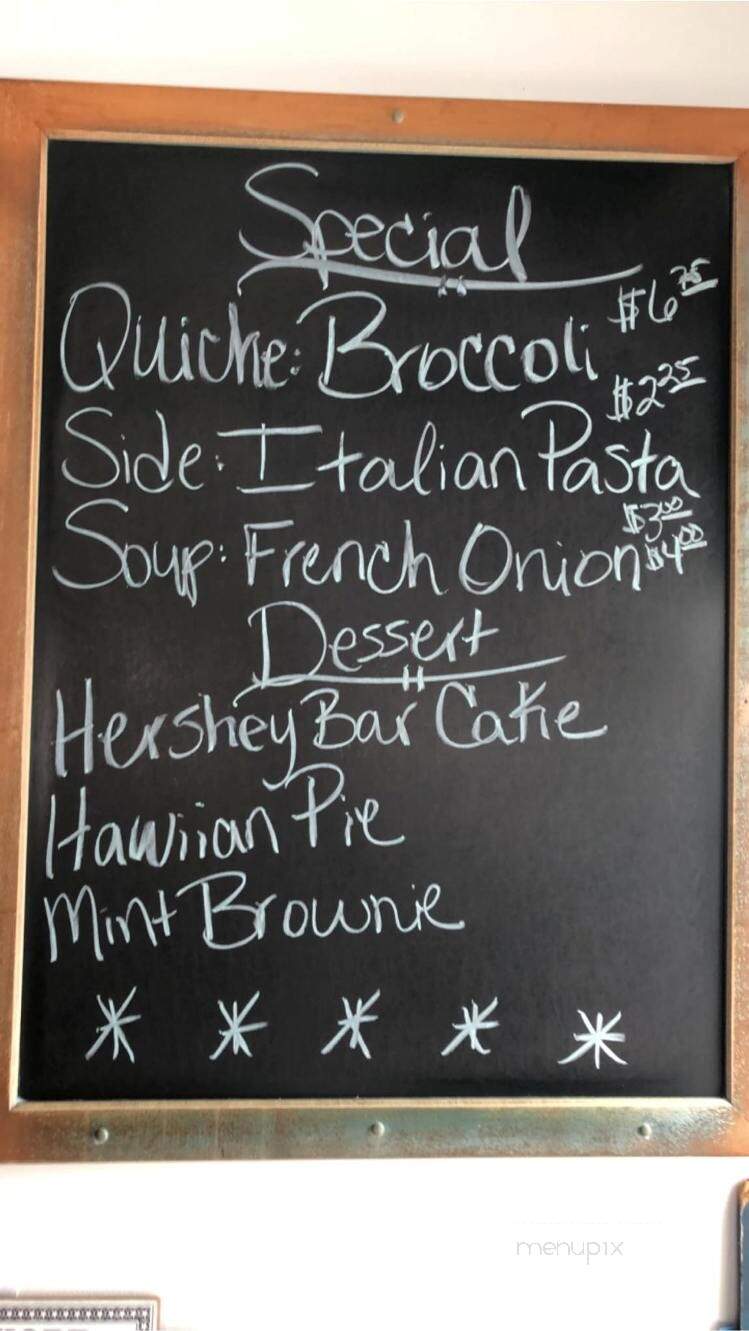 Special
Quiche: Broccoli $6.75
Side: Italian Pasta $2.25
Soup: French Onion $3.00 $4.00
Dessert
Hershey Bar Cake
Hawiian Pie
Mint Brownie
* * * * *
menupix